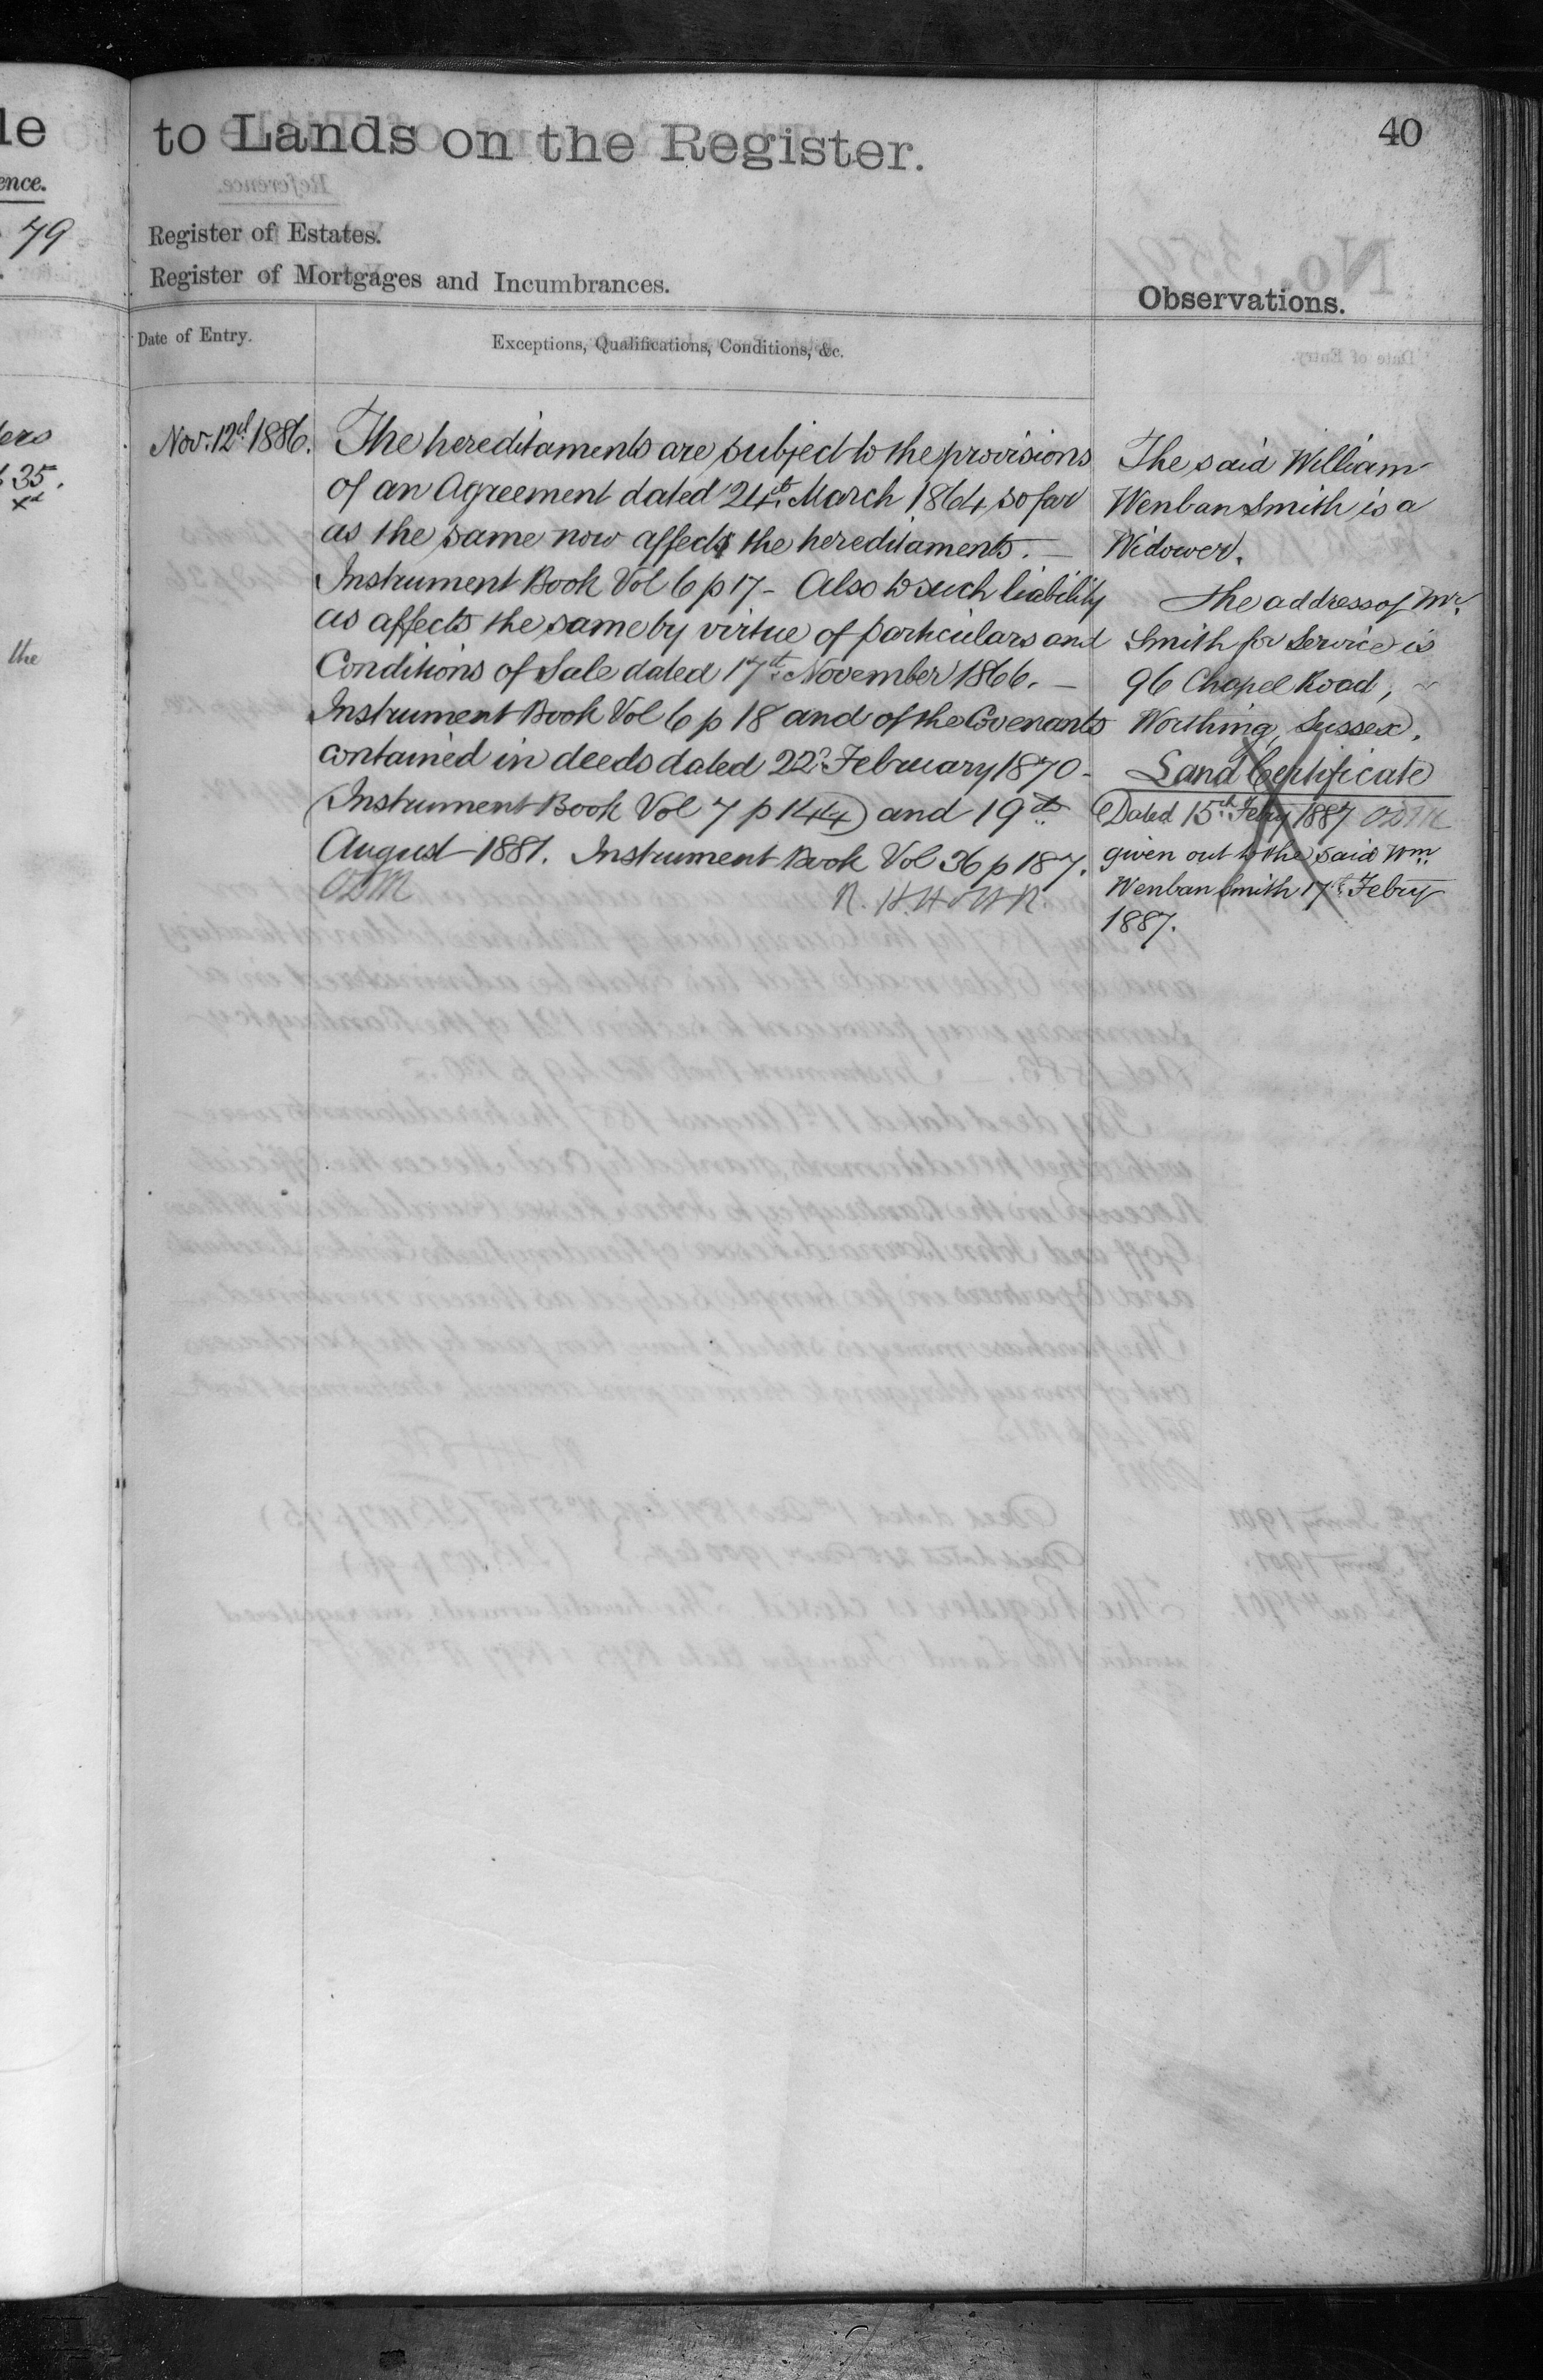 le
to Lands on the Register.
40
ence.
79
Register of Estates.
Register of Mortgages and Incumbrances.
Observations.
Date of Entry.
Exceptions, Qualifications, Conditions, &c.
35.
the
Nov. 12th 1886.
The hereditaments are subject to the provisions
of an Agreement dated 24th March 1864 so far
as the same now affects the hereditaments. —
Instrument Book Vol 6 p 17 - Also to such liability
as affects the same by virtue of particulars and
Conditions of Sale dated 17th November 1866. —
Instrument Book Vol 6 p 18 and of the Covenants
contained in deeds dated 22d February 1870 -
(Instrument Book Vol 7 p 144) and 19th
August 1881. Instrument Book Vol 36 p 187.
ODM
The said William
Wenban Smith is a
Widower.
The address of Mr.
Smith for Service is
96 Chapel Road,
Worthing, Sussex.
Land Certificate
Dated 15th Febry 1887 ODM
given out to the said Wm.
Wenban Smith 17th Febry
1887.